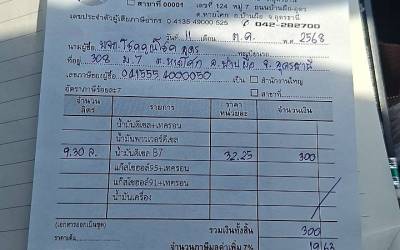 สาขาที่ 00001 เลขที่ 124 หมู่ 7 ถนนบ้านผือ-อุดร
ต.หายโศก อ.บ้านผือ จ.อุดรธานี
เลขประจำตัวผู้เสียภาษีอากร 0 4135 49000 525 042-282700
วันที่ 11 เดือน ต.ค. พ.ศ. 2568
นามผู้ซื้อ อุดร
ที่อยู่ 308 ม.7 ต.หายโศก อ.บ้านผือ จ.อุดรธานี
เลขภาษีของผู้ซื้อ 0415554000050 เป็น สำนักงานใหญ่
อัตราภาษีร้อยละ7 สาขาที่
จำนวนลิตร รายการ ราคาหน่วยละ จำนวนเงิน
น้ำมันดีเซล+เทครอน
น้ำมันพาวเวอร์ดีเซล
9.30 ล. น้ำมันดีเซล B7 32.25 300
แก๊สโซฮอล์95+เทครอน
แก๊สโซฮอล์91+เทครอน
น้ำมันเครื่อง
(เอกสารออกเป็นชุด) รวมเงินทั้งสิ้น 300
ราคาเต็ม จำนวนภาษีมูลค่าเพิ่ม 7% 19 62